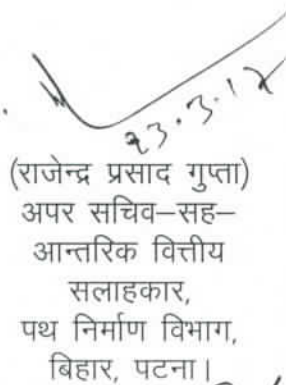 23.3.17
(राजेन्द्र प्रसाद गुप्ता)
अपर सचिव–सह–
आन्तरिक वित्तीय
सलाहकार,
पथ निर्माण विभाग,
बिहार, पटना।